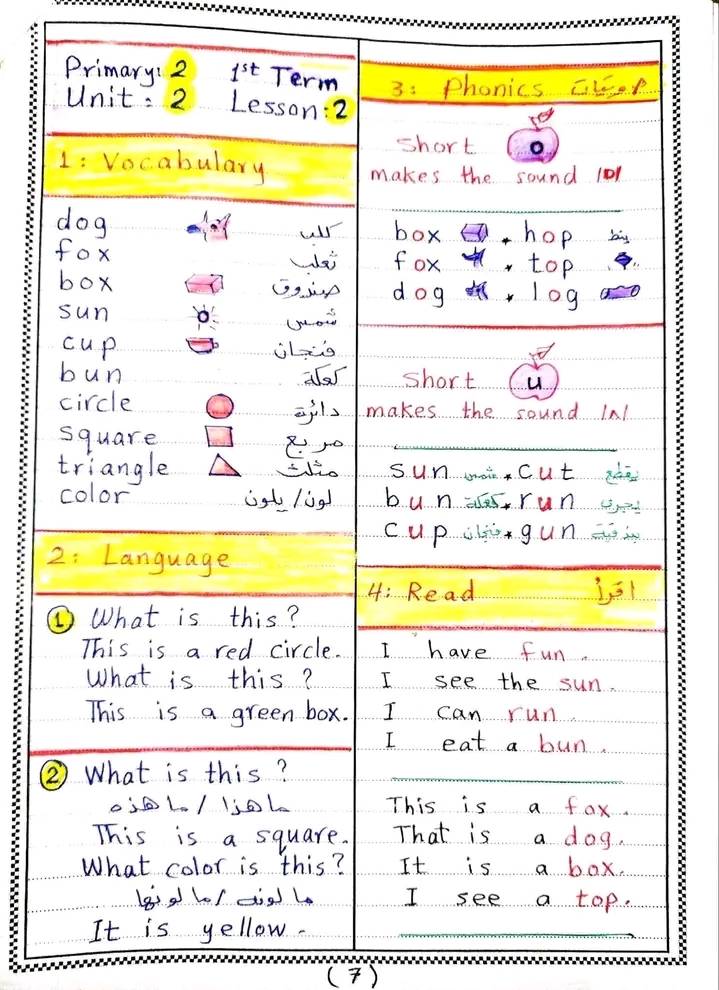 Primary: 2 1st Term
Unit: 2 Lesson: 2
1: Vocabulary
dog كلب
fox ثعلب
box صندوق
sun شمس
cup فنجان
bun كعكة
circle دائرة
square مربع
triangle مثلث
color لون / يلون
2: Language
① What is this?
This is a red circle.
What is this?
This is a green box.
② What is this?
ما هذا / ما هذه
This is a square.
What color is this?
ما لونه / ما لونها
It is yellow.
3: Phonics صوتيات
Short o
makes the sound /ɒ/
box * hop ينط
fox * top
dog * log
Short u
makes the sound /ʌ/
sun شمس * cut يقطع
bun كعكة * run يجري
cup فنجان * gun بندقية
4: Read اقرأ
I have fun.
I see the sun.
I can run.
I eat a bun.
This is a fox.
That is a dog.
It is a box.
I see a top.
(7)